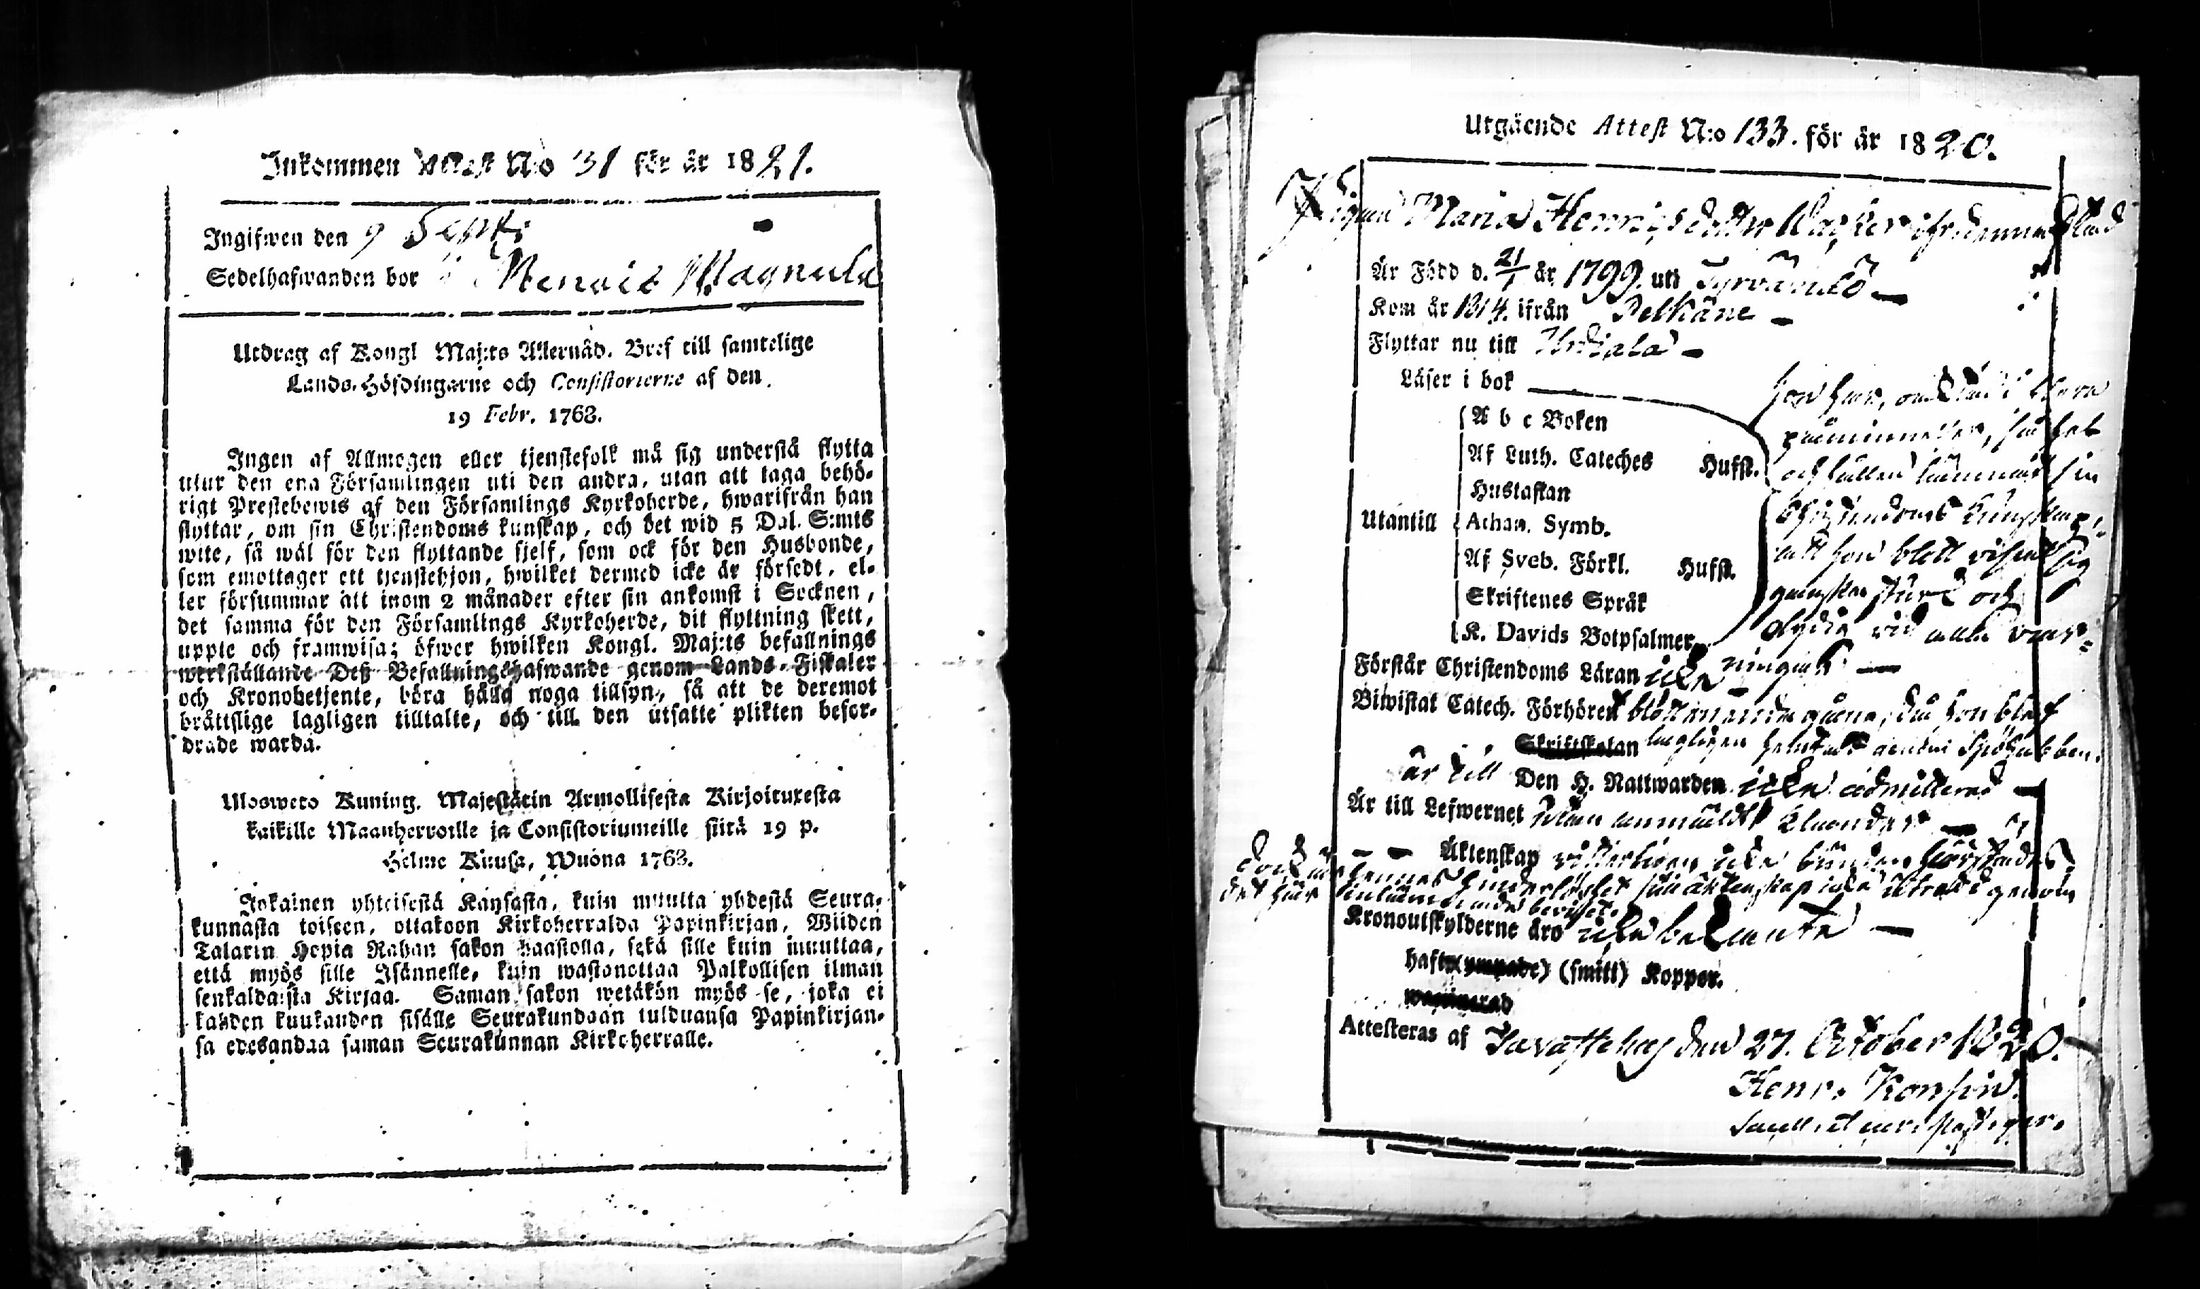 Inkommen Attest N:o 31 för år 1821.
Ingifwen den 9 Sept:
Sedelhafwanden bor i Menois Magnula
Utdrag af Kongl Maj:ts Allernåd. Bref till samtelige
Lands-Höfdingarne och Consistorierne af den
19 Febr. 1763.
Ingen af Allmogen eller tjenstefolk må sig understå flytta
utur den ena Församlingen uti den andra, utan att taga behö-
rigt Prestebewis af den Församlings Kyrkoherde, hwarifrån han
flyttar, om sin Christendoms kunskap, och det wid 5 Dal. S:mts
wite, så wäl för den flyttande sjelf, som ock för den Husbonde,
som emottager ett tjenstehjon, hwilket dermed icke är försedt, el-
ler försummar att inom 2 månader efter sin ankomst i Socknen,
det samma för den Församlings Kyrkoherde, dit flyttning skett,
uppte och framwisa; öfwer hwilken Kongl. Maj:ts befallnings
werkställande Deß Befallningshafwande genom Lands-Fiskaler
och Kronobetjente, böra hålla noga tillsyn, så att de deremot
bråttslige lagligen tilltalte, och till den utsatte plikten befor-
drade warda.
Ulosweto Kuning. Majestätin Armollisesta Kirjoituxesta
kaikille Maanherroille ja Consistoriumeille siitä 19 p.
Helme Kuusa, Wuona 1763.
Jokainen yhteisestä Kansasta, kuin muutta yhdestä Seura-
kunnasta toiseen, ottakoon Kirkoherralda Papinkirjan, Wiiden
Talarin Hopia Rahan sakon haastolla, sekä sille kuin muuttaa,
että myös sille Isännelle, kuin wastanottaa Palkollisen ilman
senkaldaista Kirjaa. Saman sakon wetäkön myös se, joka ei
kahden kuukauden sisälle Seurakundaan tulduansa Papinkirjan-
sa edesandaa saman Seurakunnan Kirkoherralle.
Utgående Attest N:o 133. för år 1820.
Pigan Maria Henricsdotter Wacker ifrån denna Stad
Är Född d. 21/1 år 1799. uti Tyrvändö
Kom år 1814. ifrån Pelkäne
Flyttar nu till Urdiala
Läser i bok
hon har, om
A b c Boken
Af Luth. Cateches Hufst.
och sällan
Hustaflan
Christendoms kunskap;
Utantill Athan. Symb.
att hon blott visat sig
Af Sveb. Förkl. Hufst.
ganska och
Skriftenes Språk
K. Davids Botpsalmer
vid alla var-
Förstår Christendoms Läran icke ningar
Biwistat Catech. Förhören blott en enda gång, då hon blef
Skriftskolan lagligen
är till Den H. Nattwarden icke admitterad
Är till Lefwernet utan anmäldt klander
Äktenskap icke bunden
Kronoutskylderne äro icke bekante
haft (ympade) (smitt) Koppor.
waccinerad
Attesteras af Tavastehus den 27. October 1820.
Henr. Konsin